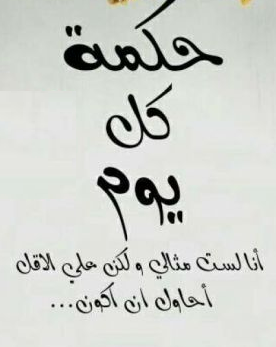 حكمة
كل
يوم
أنا لست مثالي ولكن علي الاقل
أحاول ان اكون...